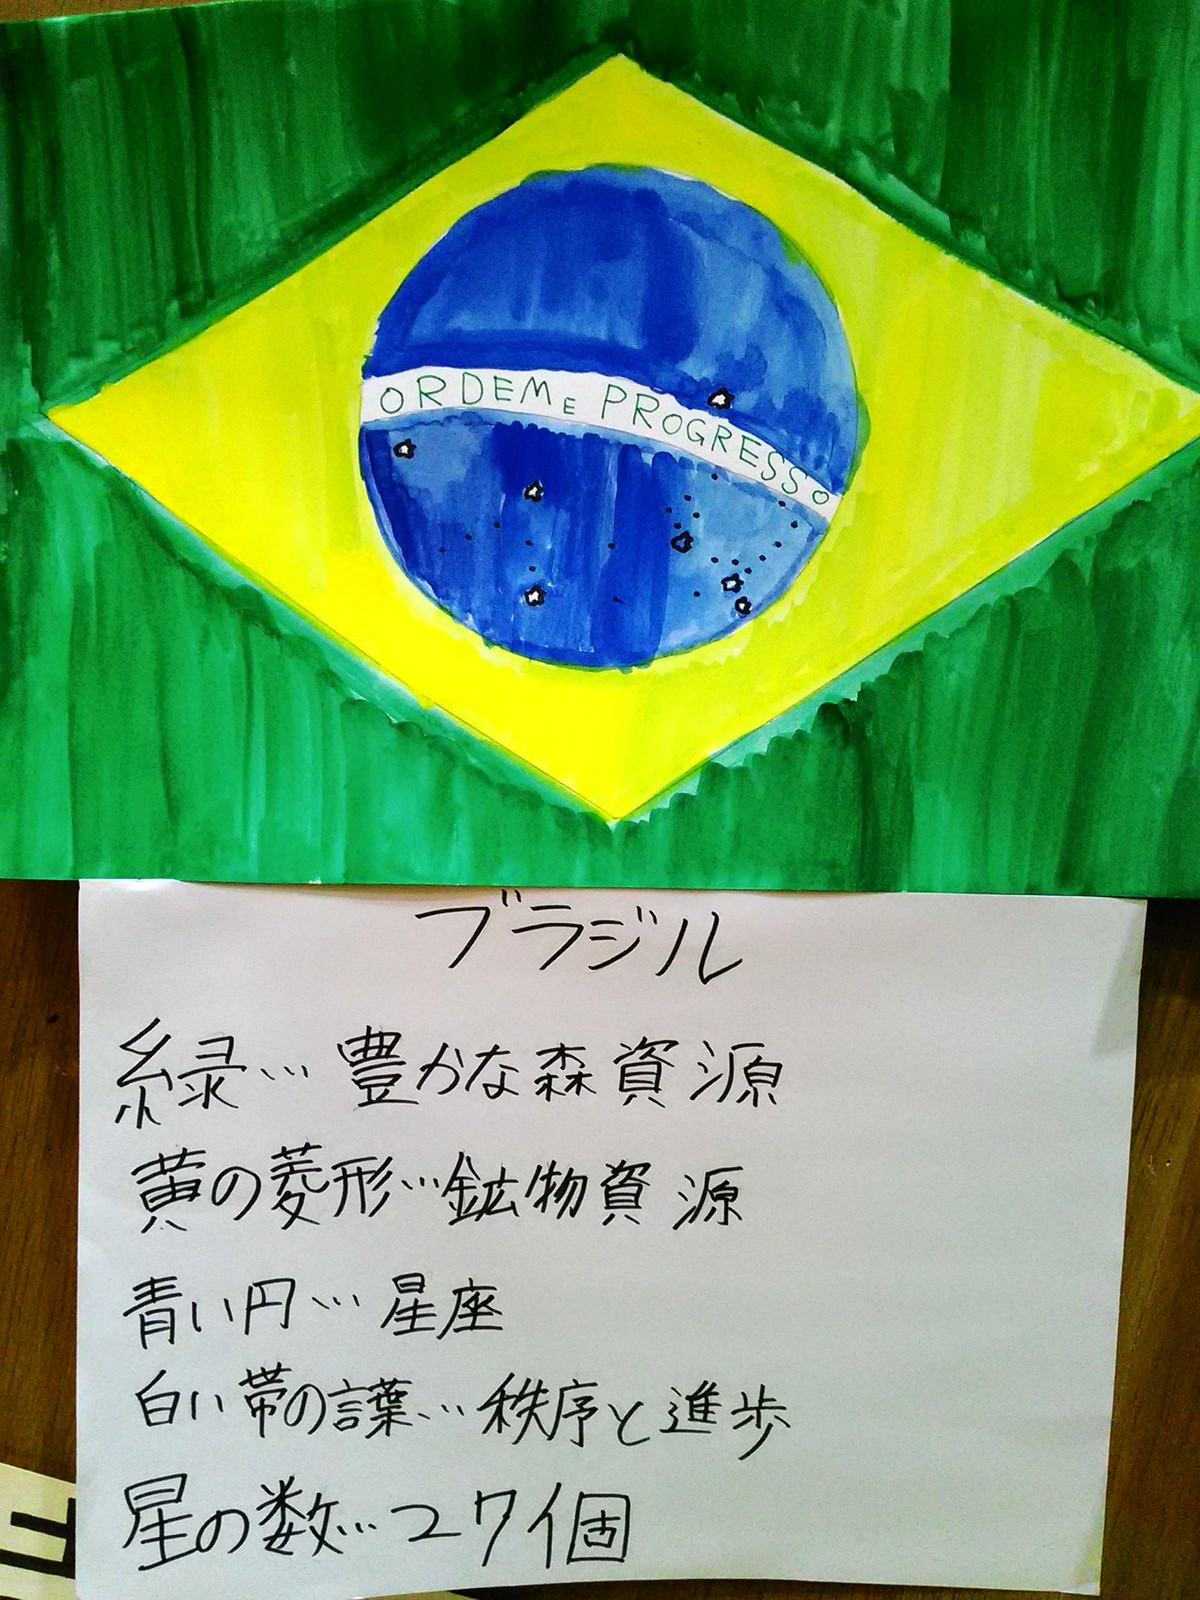 ORDEM E PROGRESSO
ブラジル
緑… 豊かな森資源
黄の菱形…鉱物資源
青い円… 星座
白い帯の言葉… 秩序と進歩
星の数… 27個